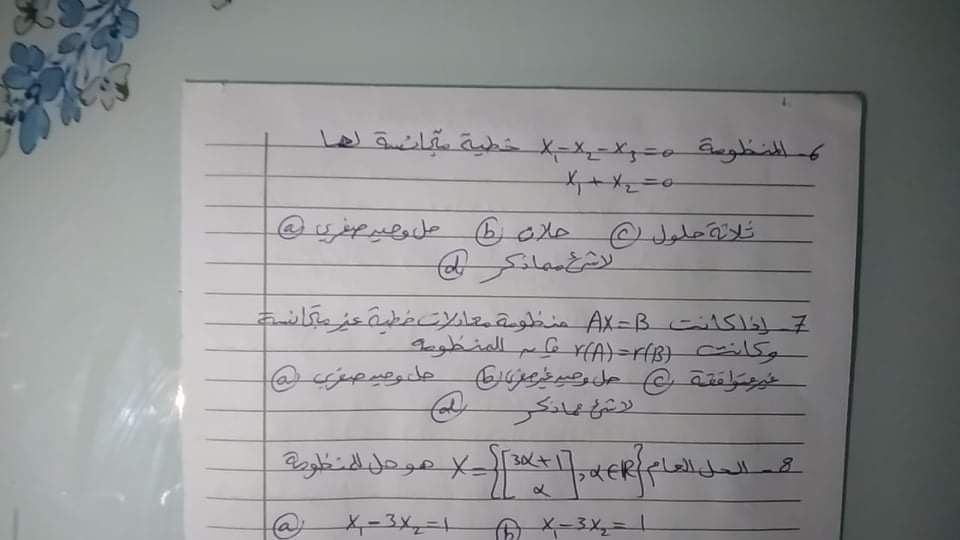 6- المنظومة x₁-x₂-x₃=0 خطية متجانسة لها
x₁+x₂=0
ⓐ حل وحيد صفري ⓑ حلان ⓒ ثلاثة حلول
ⓓ لا شئ مما ذكر
7- إذا كانت AX=B منظومة معادلات خطية غير متجانسة
وكانت r(A)=r(B) فإن المنظومة
ⓐ حل وحيد صفري ⓑ حل وحيد غير صفري ⓒ غير متوافقة
ⓓ لا شئ مما ذكر
8- الحل العام X={[3α+1 α], α∈R} هو حل المنظومة
ⓐ x₁-3x₂=1 ⓑ x₁-3x₂=1